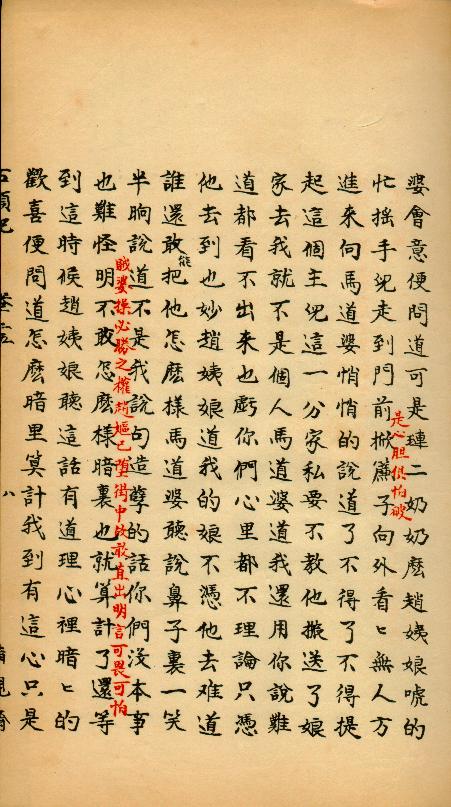 婆會意便問道可是璉二奶奶麽趙姨娘唬的
忙摇手兒走到門前掀簾子向外看㆑無人方
是心胆俱怕破
進来向馬道婆悄悄的說道了不得了不得提
起這個主兒這一分家私要不教他搬送了娘
家去我就不是個人馬道婆道我還用你說難
道都看不出来也虧你們心里都不理論只憑
他去到也妙趙姨娘道我的娘不憑他去难道
誰還敢把他怎麽樣馬道婆聽說鼻子裏一笑
能
半晌說道不是我說句造孽的話你們没本事
賊婆操必勝之權趙嫗已墮術中故敢直出明言可畏可怕
也難怪明不敢怎麽樣暗裏也就算計了還等
到這時候趙姨娘聽這話有道理心裡暗㆑的
歡喜便問道怎麽暗里算計我到有這心只是
石頭記 卷二十五 八